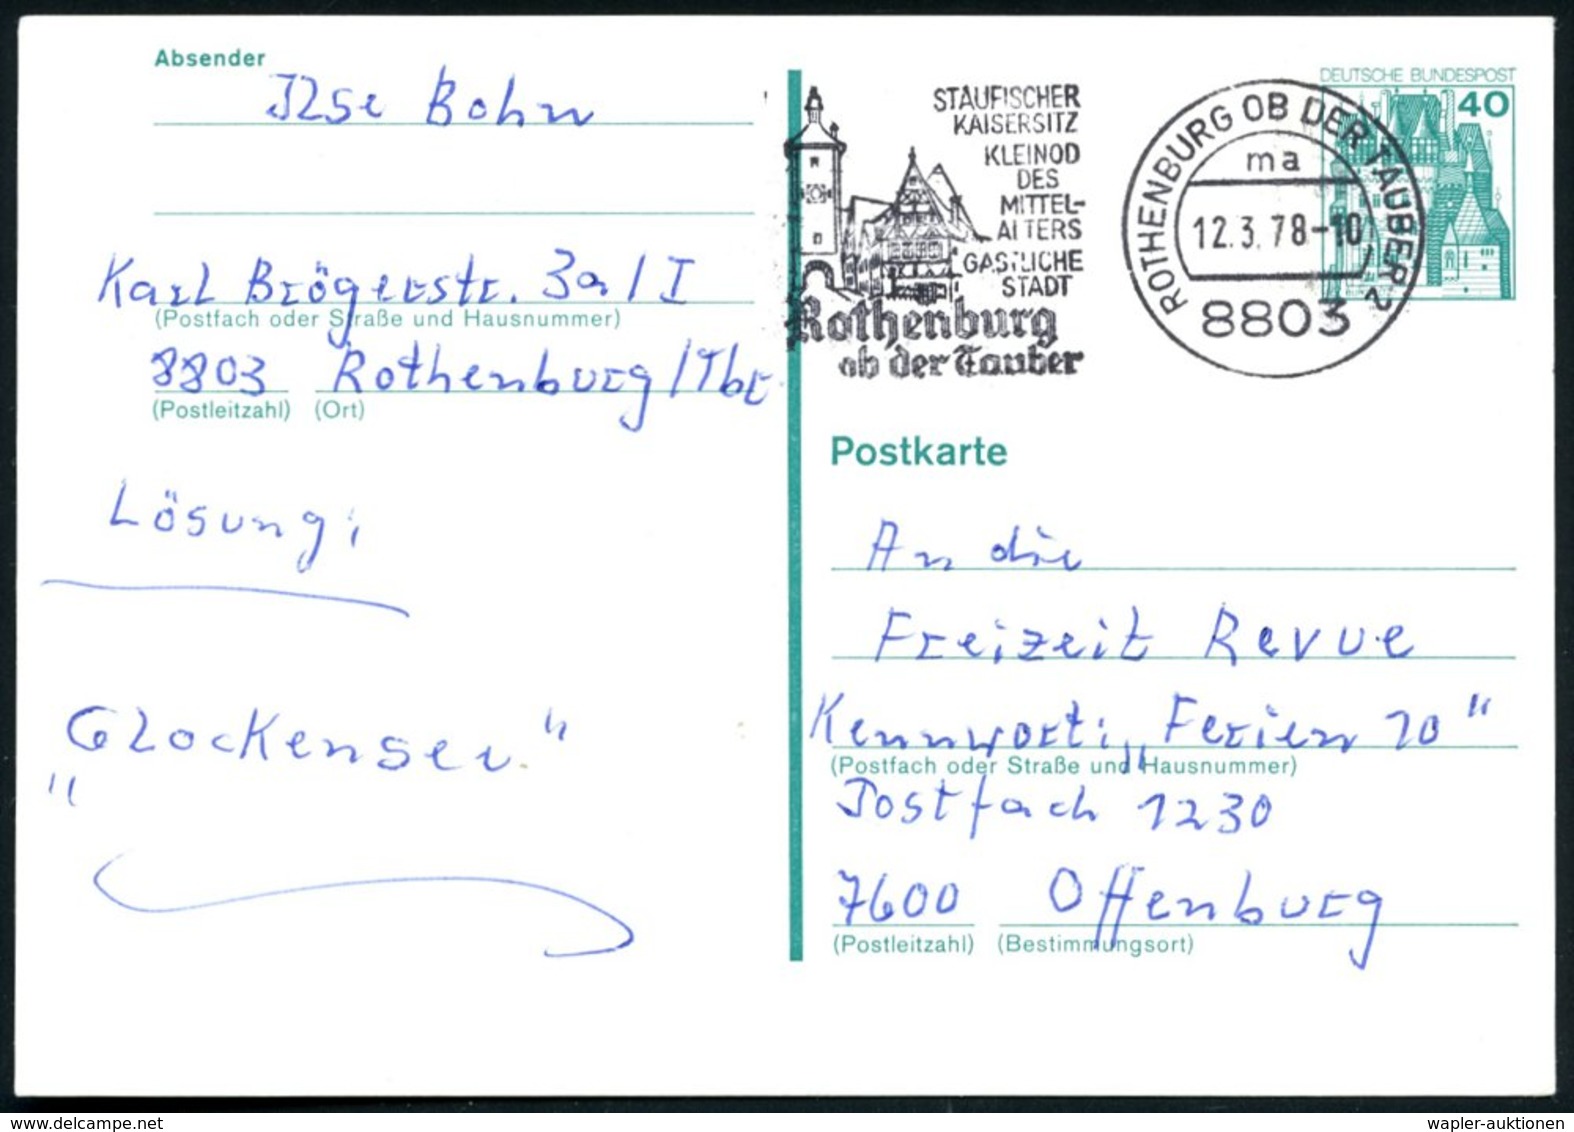 Absender
Ilse Bohn
Karl Brögerstr. 3a/I
(Postfach oder Straße und Hausnummer)
8803 Rothenburg/Tbr
(Postleitzahl) (Ort)
Lösung:
"Glockensee"
STAUFISCHER
KAISERSITZ
KLEINOD
DES
MITTEL-
ALTERS
GASTLICHE
STADT
Rothenburg
ob der Tauber
ROTHENBURG OB DER TAUBER 2
ma
12.3.78-10
8803
DEUTSCHE BUNDESPOST
40
Postkarte
An die
Freizeit Revue
Kennwort: „Ferien 10"
(Postfach oder Straße und Hausnummer)
Postfach 1230
7600 Offenburg
(Postleitzahl) (Bestimmungsort)
wapler-auktionen